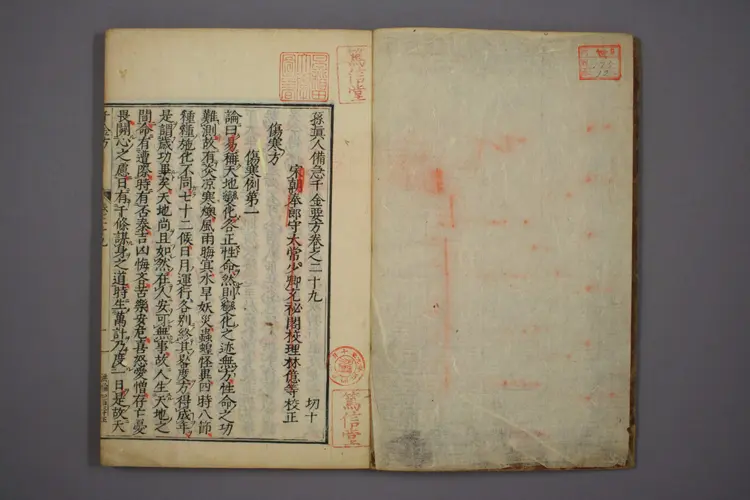 篤信堂
孫眞人備急千金要方卷之二十九
切十
宋朝奉郎守太常少卿充秘閣校理林億等校正
傷寒方
傷寒例第一
論曰易稱天地變化各正性命然則變化之迹無方性命之功
難測故有炎凉寒燠風雨晦冥水旱妖災蟲蝗怪異四時八節
種種施化不同七十二候日月運行各別終其晷度方得成年
是謂歲功畢矣天地尚且如然在人安可無事故人生天地之
間命有遭際時有否泰吉凶悔吝苦樂安危喜怒愛憎存亡憂
畏關心之慮日有千條謀身之道時生萬計乃度一日是故天
千金方
篤信堂